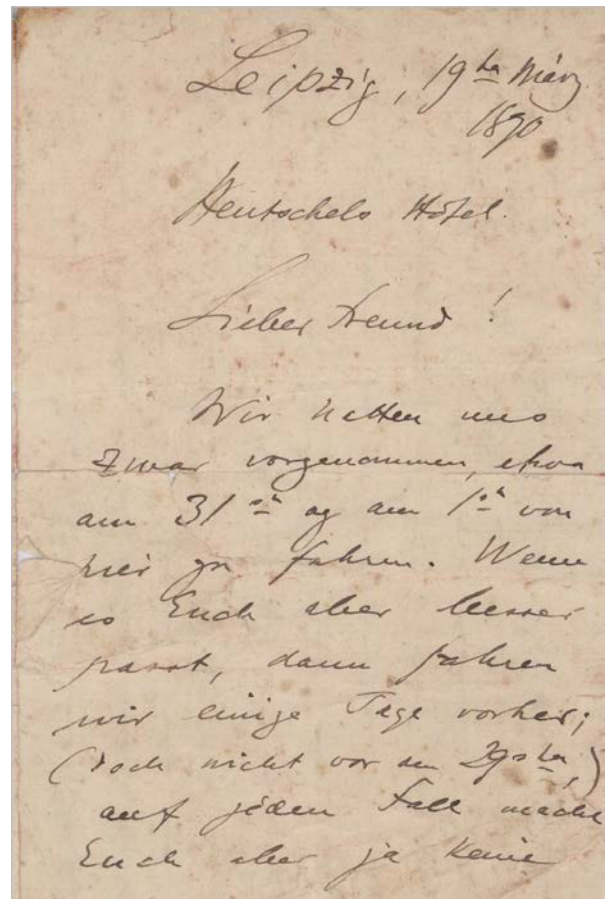 Leipzig, 19ten März
1890
Hentschels Hôtel.
Lieber Freund!
Wir hatten uns
zwar vorgenommen, etwa
am 31sten og am 1sten von
hier zu fahren. Wenn
es Euch aber besser
passt, dann fahren
wir einige Tage vorher;
(doch nicht vor den 29sten,)
auf jeden Fall macht
Euch aber ja keine